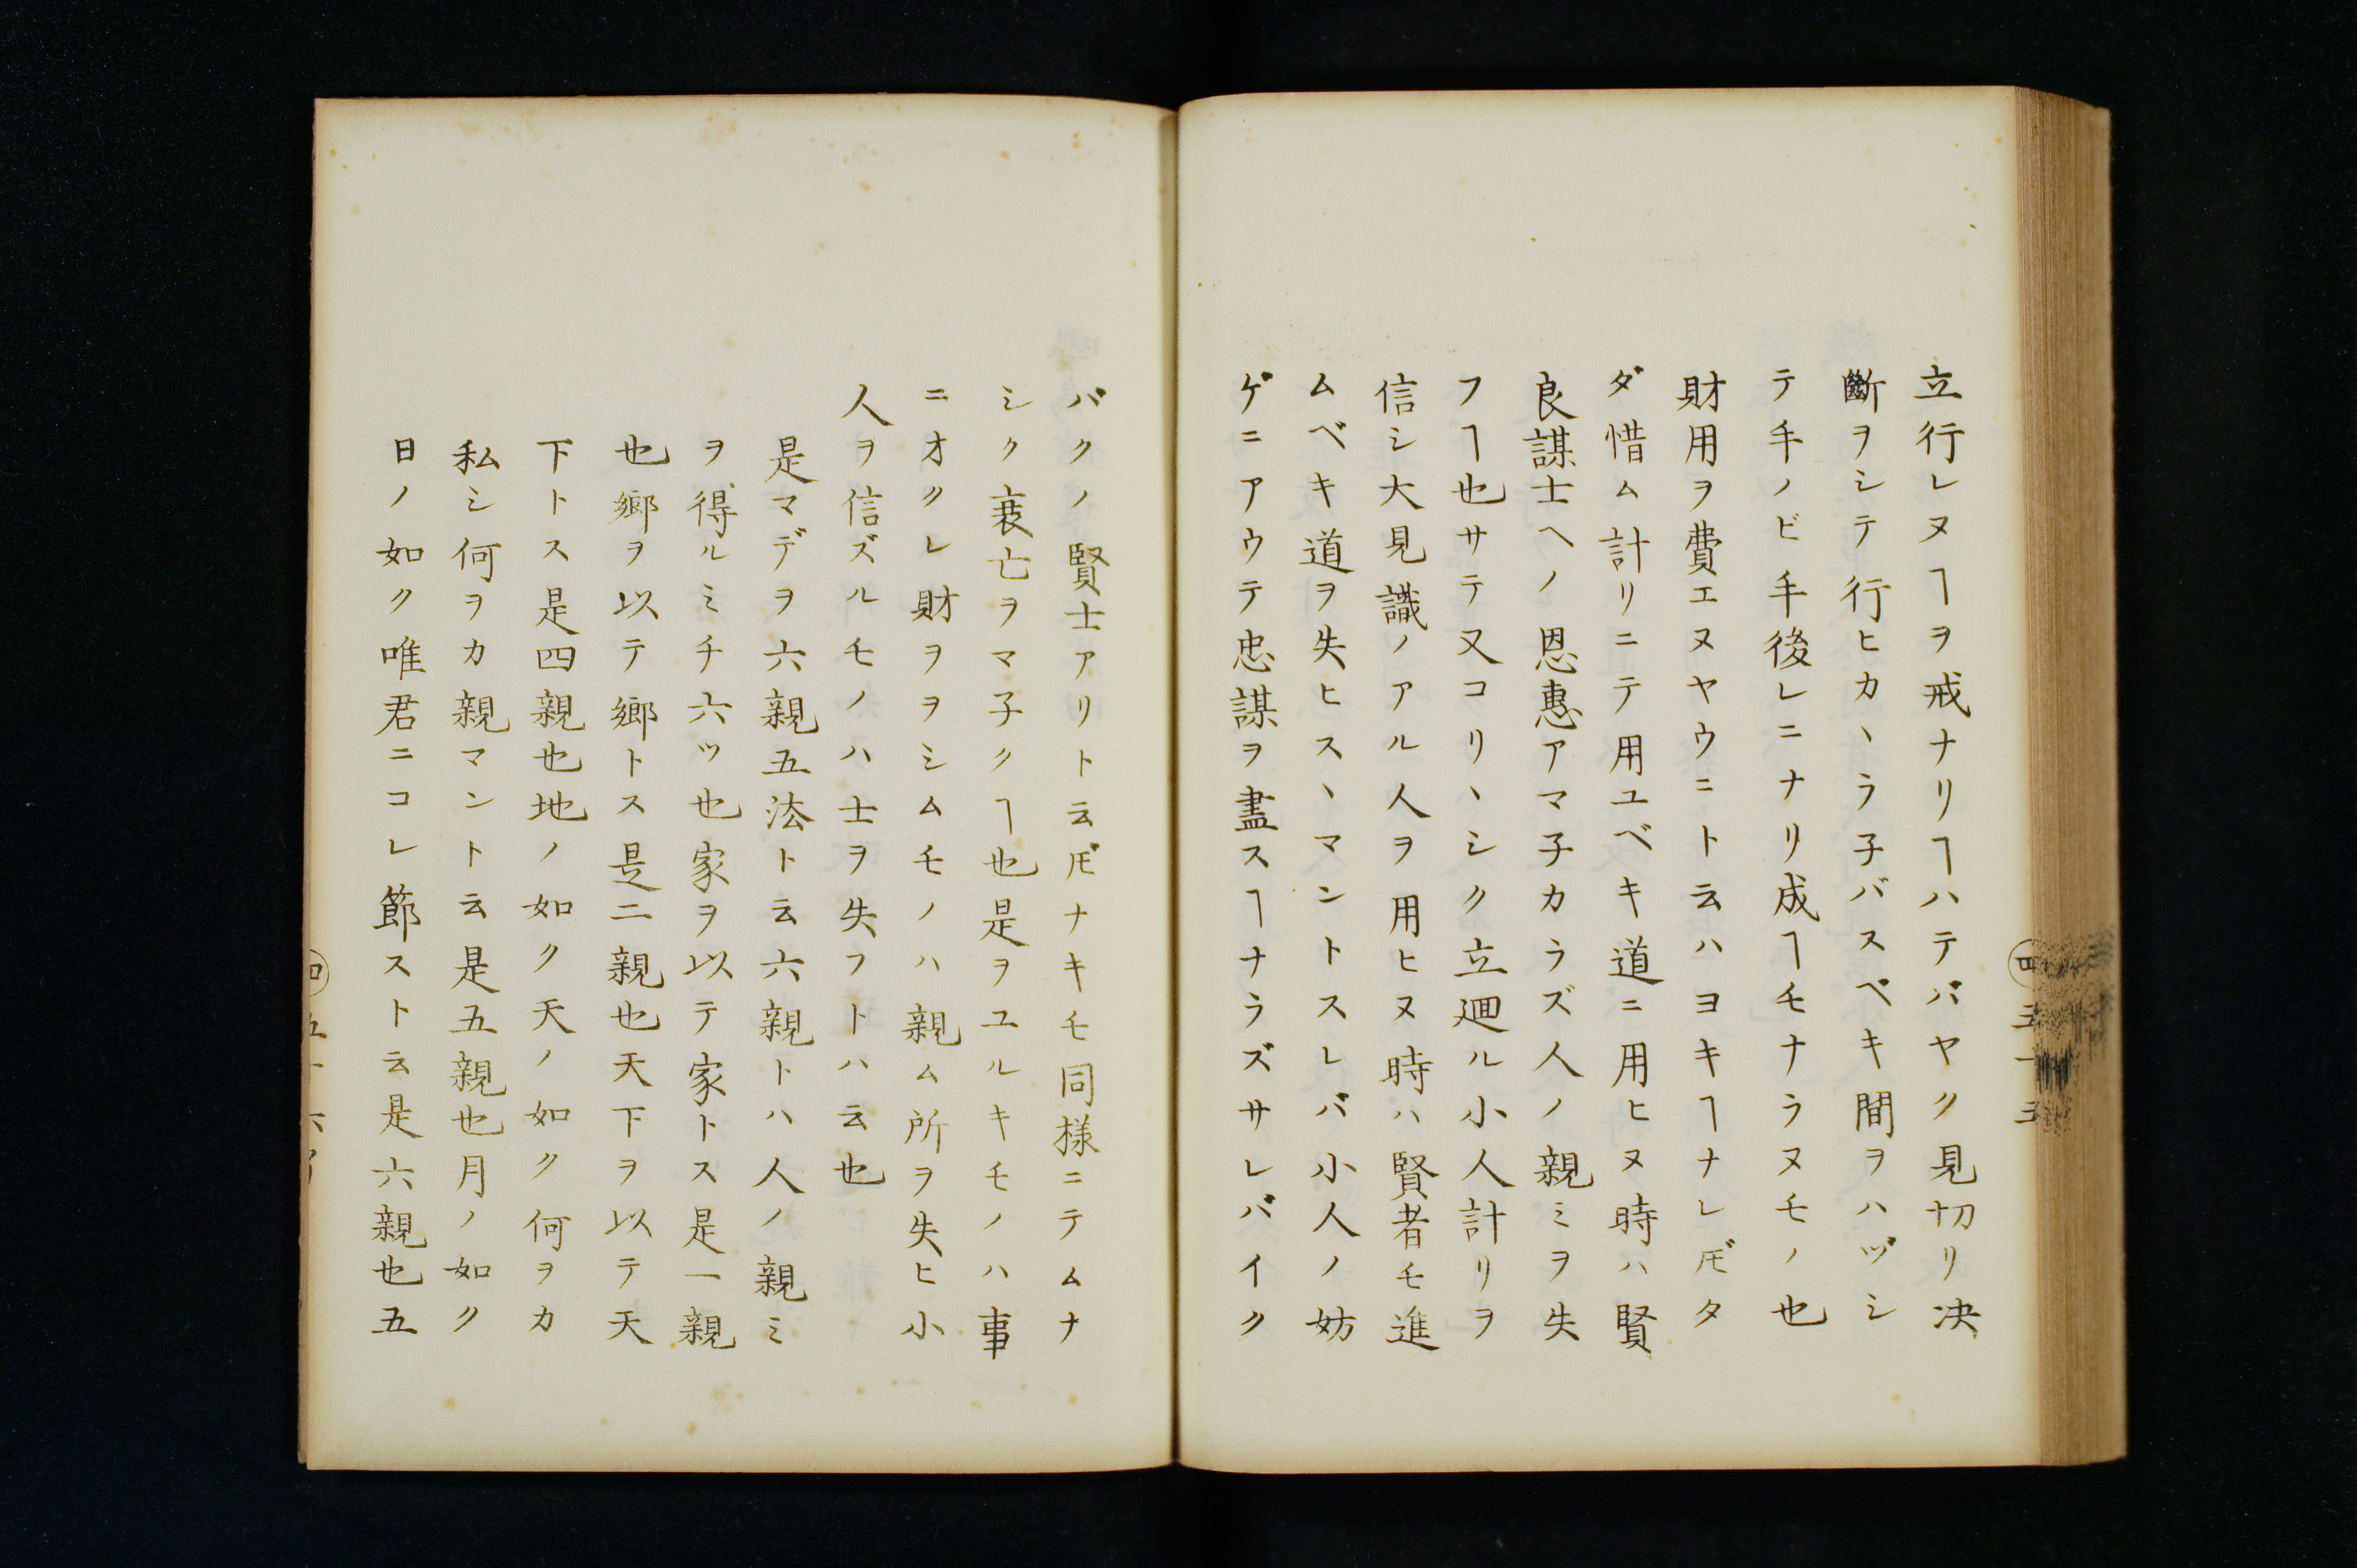 立行レヌヿヲ戒ナリヿハテバヤク見切リ决
斷ヲシテ行ヒカヽラ子バスベキ間ヲハヅシ
テ手ノビ手後レニナリ成ヿモナラヌモノ也
財用ヲ費エヌヤウニト云ハヨキヿナレ𪜈タ
ダ惜ム計リニテ用ユベキ道ニ用ヒヌ時ハ賢
良謀士ヘノ恩惠アマ子カラズ人ノ親ミヲ失
フヿ也サテ又コリヽシク立廻ル小人計リヲ
信シ大見識ノアル人ヲ用ヒヌ時ハ賢者モ進
ムベキ道ヲ失ヒスヽマントスレバ小人ノ妨
ゲニアウテ忠謀ヲ盡スヿナラズサレバイク
バクノ賢士アリト云𪜈ナキモ同様ニテムナ
シク衰亡ヲマ子クヿ也是ヲユルキモノハ事
ニオクレ財ヲヲシムモノハ親ム所ヲ失ヒ小
人ヲ信ズルモノハ士ヲ失フトハ云也
是マデヲ六親五法ト云六親トハ人ノ親ミ
ヲ得ルミチ六ツ也家ヲ以テ家トス是一親
也鄉ヲ以テ鄉トス是二親也天下ヲ以テ天
下トス是四親也地ノ如ク天ノ如ク何ヲカ
私シ何ヲカ親マント云是五親也月ノ如ク
日ノ如ク唯君ニコレ節スト云是六親也五